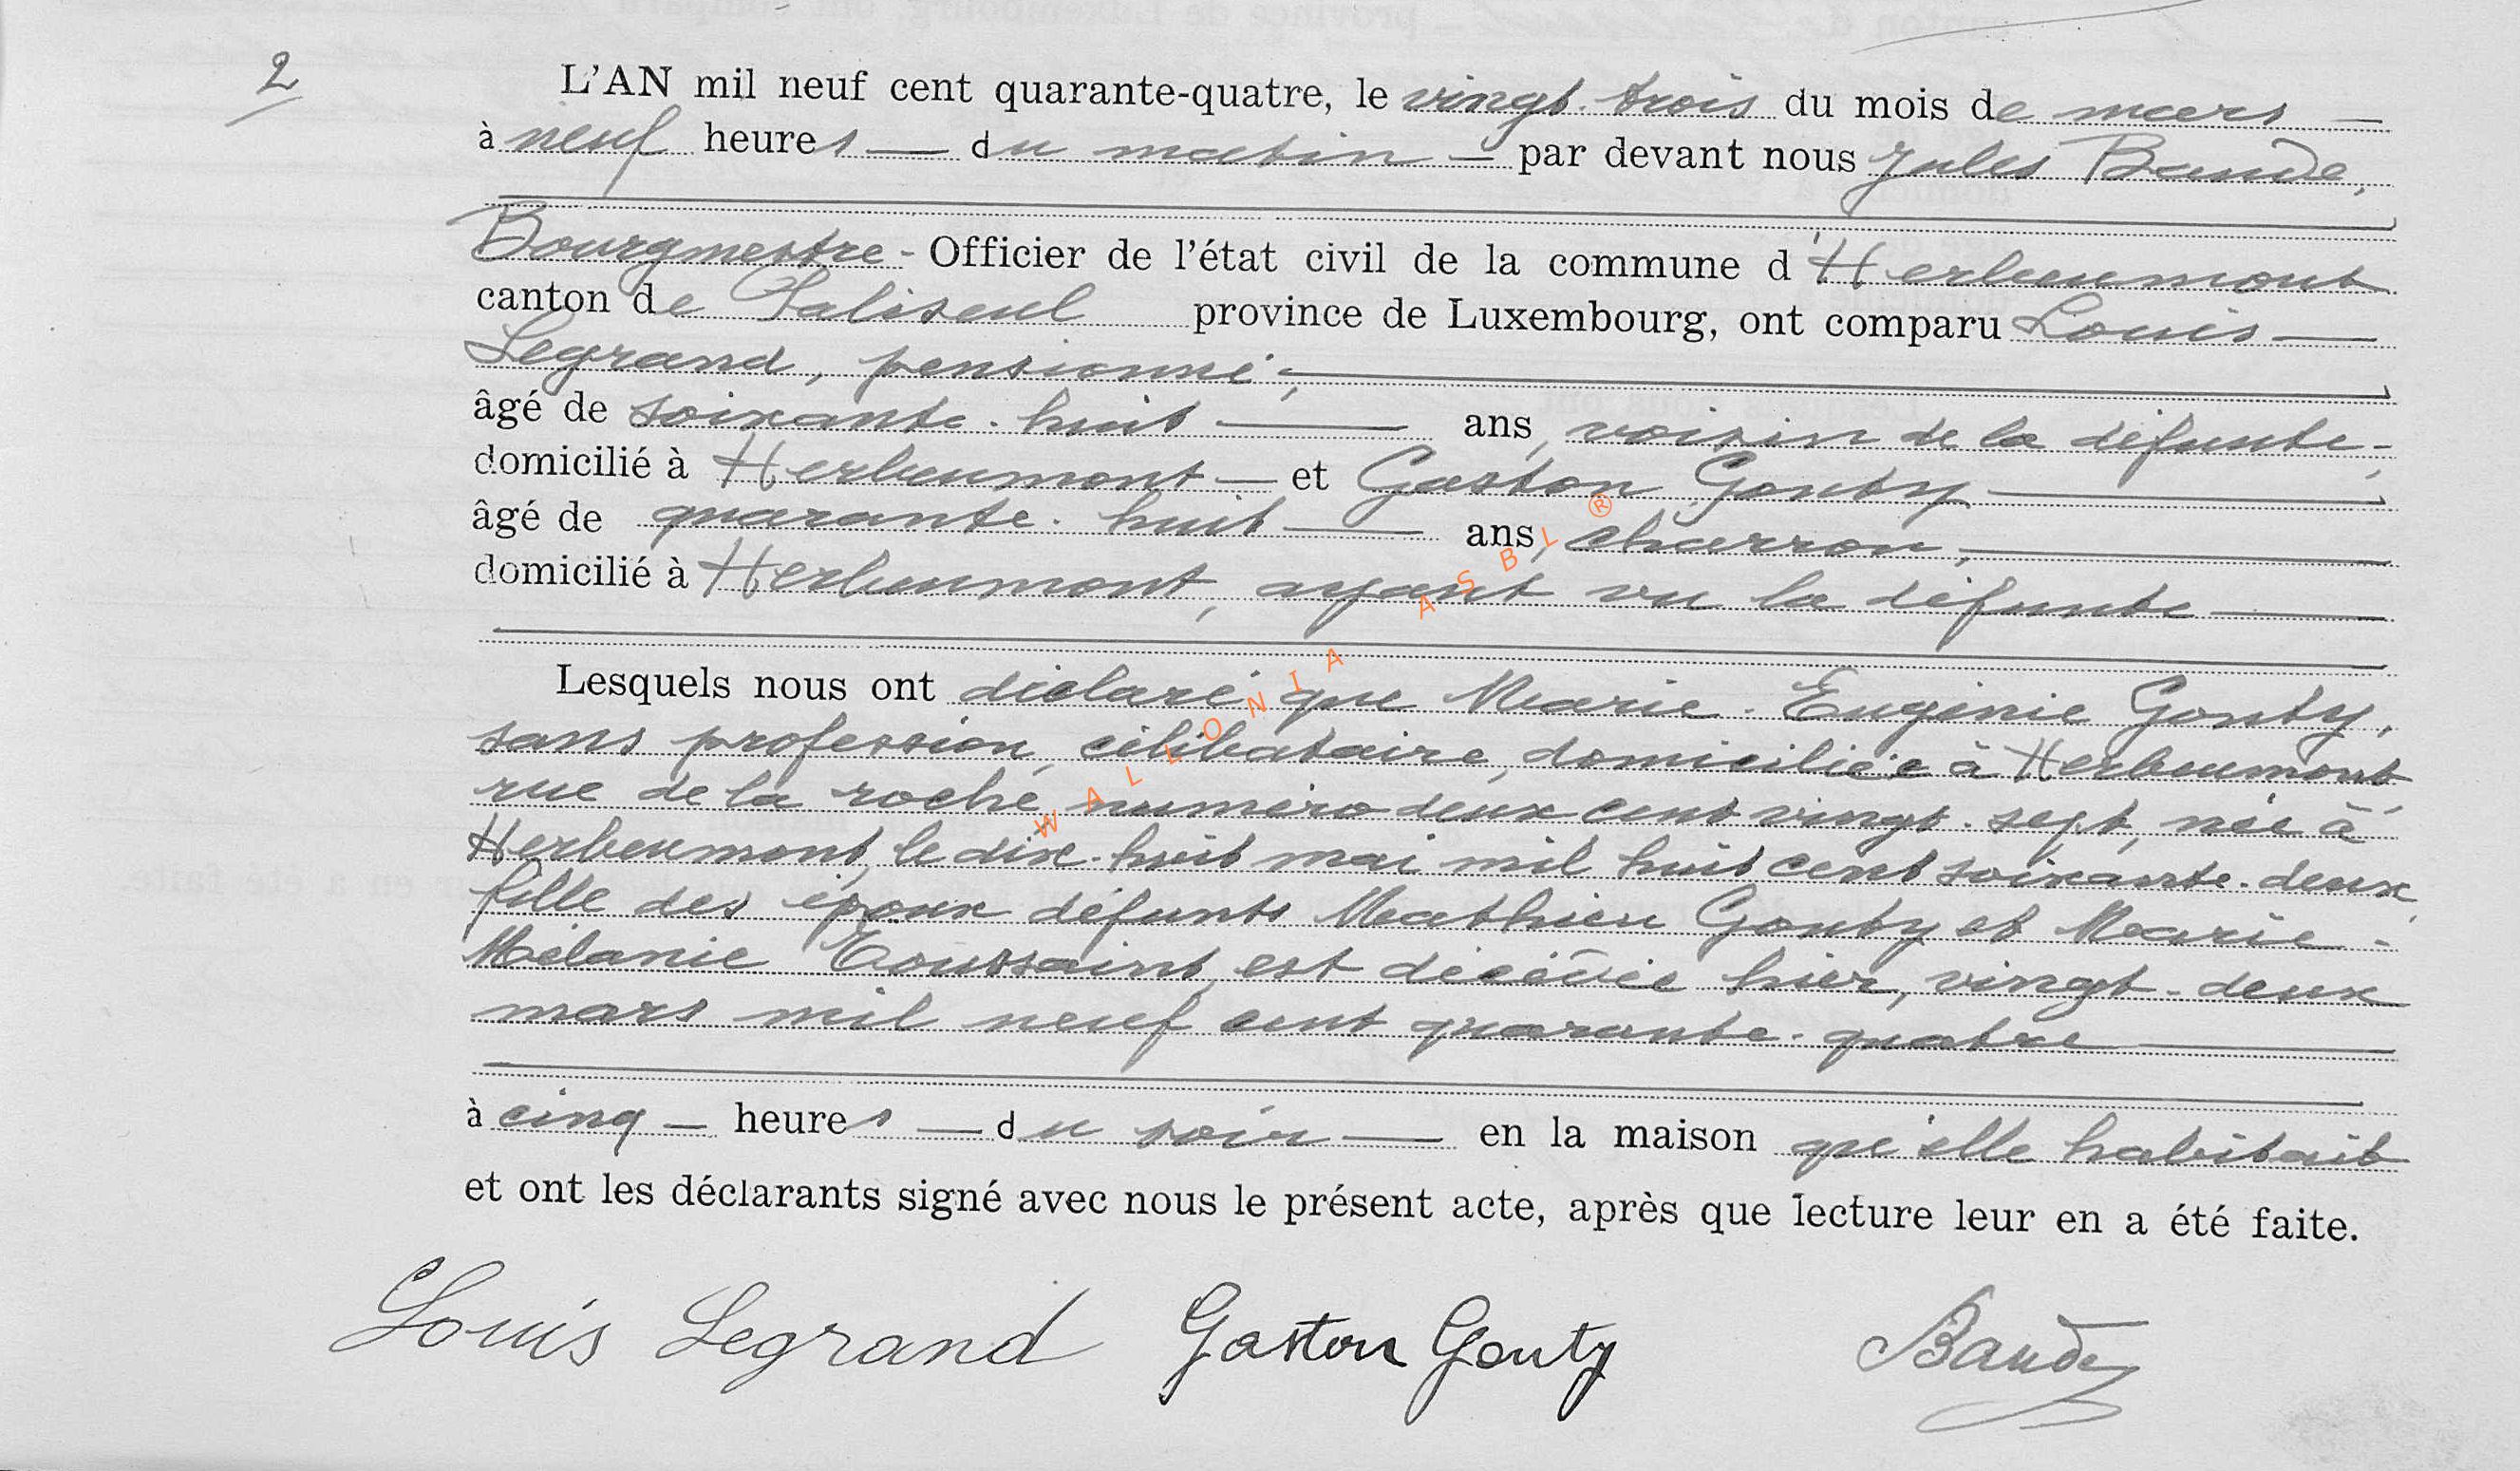 2
L'AN mil neuf cent quarante-quatre, le vingt-trois du mois de mars
à neuf heures du matin par devant nous Jules Baude,
Bourgmestre - Officier de l'état civil de la commune d'Herbeumont
canton de Paliseul province de Luxembourg, ont comparu Louis
Legrand, pensionné,
âgé de soixante-huit ans, voisin de la défunte,
domicilié à Herbeumont et Gaston Gouty
âgé de quarante-huit ans, charron,
domicilié à Herbeumont, ayant vu la défunte
Lesquels nous ont déclaré que Marie-Eugénie Gouty,
sans profession, célibataire, domiciliée à Herbeumont,
rue de la roche, numéro deux cent vingt-sept, née à
Herbeumont, le dix-huit mai mil huit cent soixante-deux,
fille des époux défunts Mathieu Gouty et Marie-
Mélanie Toussaint, est décédée hier, vingt-deux
mars mil neuf cent quarante-quatre
à cinq heures du soir en la maison qu'elle habitait
et ont les déclarants signé avec nous le présent acte, après que lecture leur en a été faite.
Louis Legrand Gaston Gouty Baude
WALLONIA ASBL ®